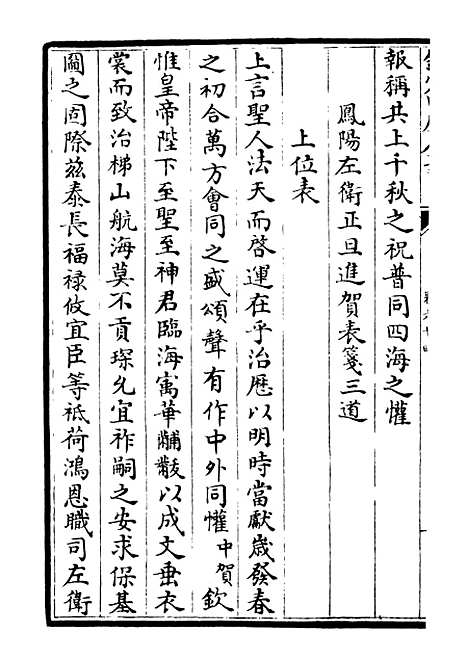 報稱共上千秋之祝普同四海之懽
鳳陽左衛正旦進賀表箋三道
上位表
上言聖人法天而啓運在乎治厯以明時當獻歲發春
之初合萬方會同之盛頌聲有作中外同懽中賀欽
惟皇帝陛下至聖至神君臨海寓華黼黻以成文垂衣
裳而致治梯山航海莫不貢琛允宜祚嗣之安求保基
圖之固際兹泰長福禄攸宜臣等祗荷鴻恩職司左衛